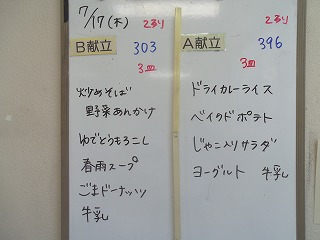 7/17(木)
2るり
B献立 303
3皿
炒めそば
野菜あんかけ
ゆでとうもろこし
春雨スープ
ごまドーナッツ
牛乳
2るり
A献立 396
3皿
ドライカレーライス
ベイクドポテト
じゃこ入りサラダ
ヨーグルト 牛乳